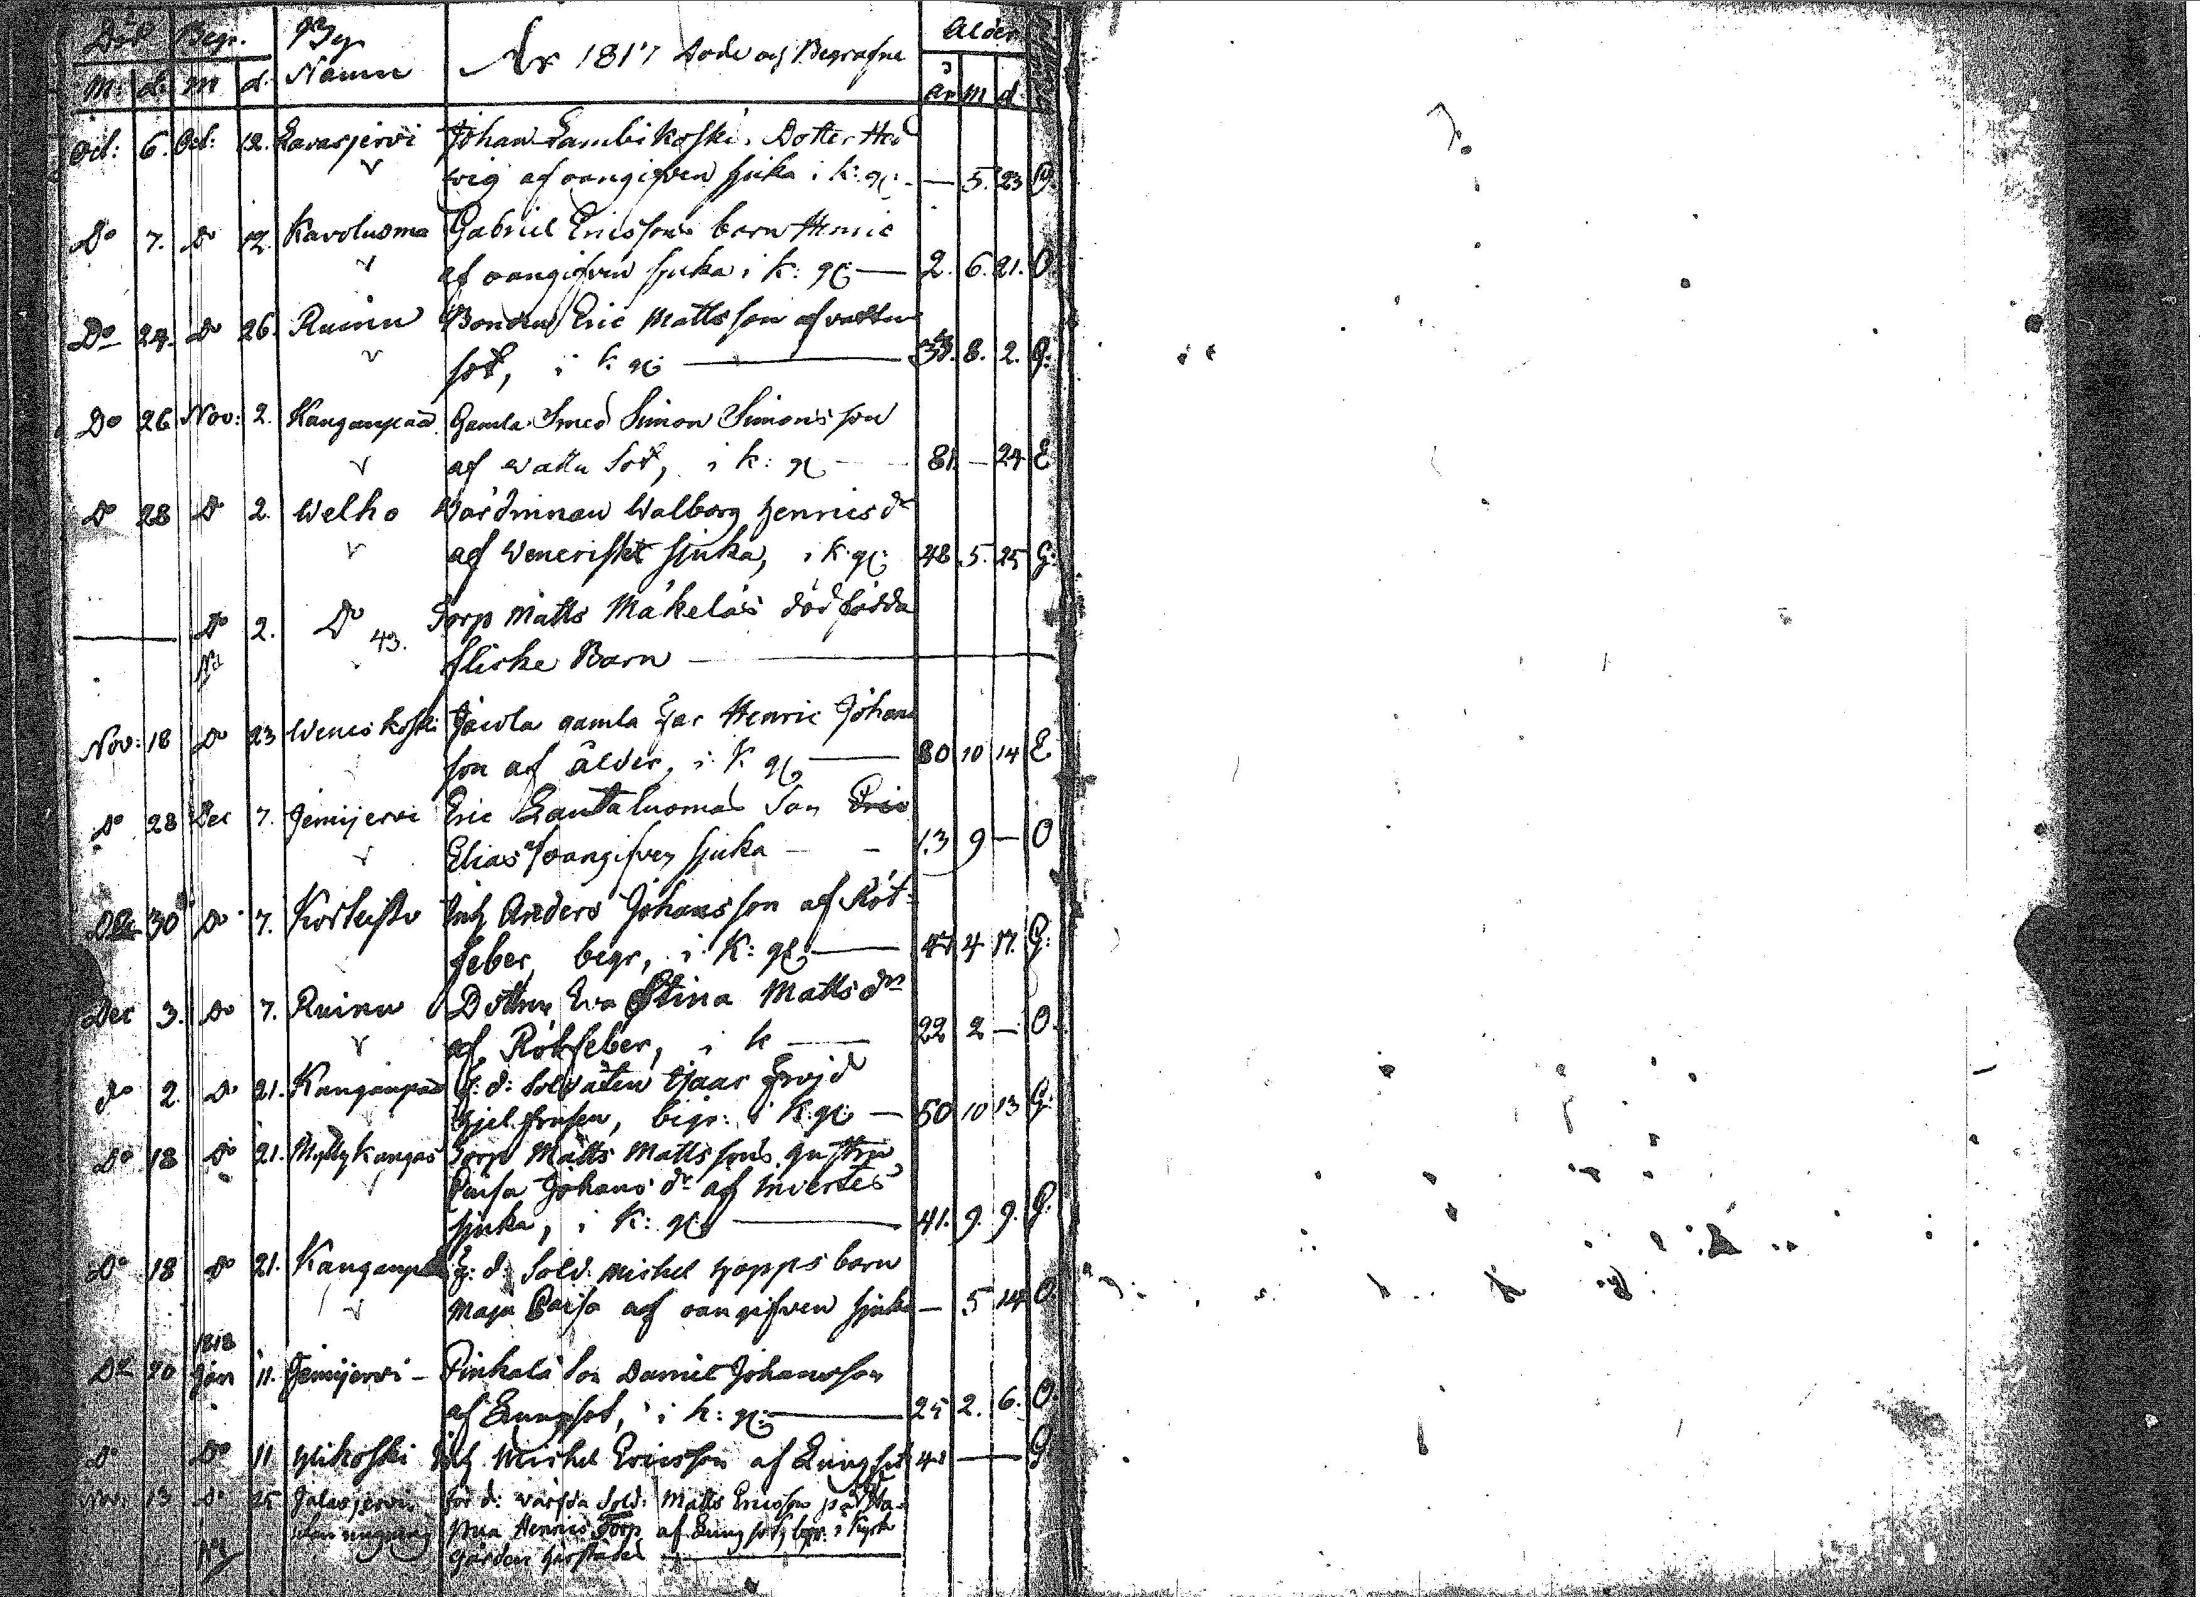 Död Begr. By Ålder
År 1817 Döde och Begrafne
M: d: M d. Namn År M d
Oct: 6. Oct: 12. Karvasjervi Johan Lambikoski Dotter Hed
wig af oangifven sjuka i k: g: — 5. 23 O.
Do 7. Do 12. Karvluoma Gabriel Ericssons barn Henric
af oangifven sjuka i k: g: — 2. 6. 21. O.
Do 24. Do 26. Ruinu Bonden Eric Mattsson af vattu
sot, i k: g: — 8. 2. G:
Do 26 Nov: 2. Kanganpää Gamla Smed Simon Simonsson
af wattu sot, i k: g — 81. — 24 E
Do 28 Do 2. Welho Värdinnan Walborg Henricsdr
af Weneriske sjuka, i k: g: 48 5. 25 G:
— Do 2. Do 43. Torp Matts Mäkeläs dödfödda
flicke Barn —
Nov: 18 Do 23 Weneskoski gamla Far Henric Johans
son af ålder, i k: g: — 80 10 14 E
Do 28 Dec 7. Jemijervi Eric Lautaluomas Son Eric
Elias af oangifven sjuka — — 13 9 — O
30 Do 7. Inh Anders Johansson af Röt-
feber, begr, i K: g: — 4 17. G:
Dec 3. Do 7. Ruinu Dottren Eva Stina Mattsdr
af Rötfeber, i k — 22 2 — O.
do 2. Do 21. Kanganpää F: d: Soldaten Fröjd
ihjelfrusen, begr: i k: g: — 50 10 13 G:
Do 18 Do 21. Myllykangas Torp Matts Mattssons hustru
Caisa Johansdr af invertes
sjuka, i k: g: — 41. 9. 9. G.
Do 18 Do 21. Kanganpää F: d: Sold. Michel Hopps barn
Maja Caisa af oangifven sjuka — 5 14 O.
1818
Do 20 Jan 11. Jemijervi – Pinkala Son Daniel Johansson
af Lungsot, i k: g: — 25 2. 6. O.
Do Do 11 Ylikoski Inh Michel Ericsson af Lungsot — — G
Nov: 13 Do 25 Jalasjervi för d: värfda Sold: Matts Ericsson på
Henrics Torp af Lungsot, begr: i Kyrko
gården härstädes —